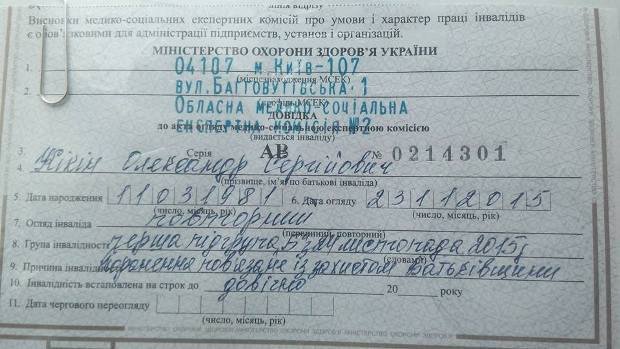 лінія відрізу
Висновки медико-соціальних експертних комісій про умови і характер праці інвалідів
є обов'язковими для адміністрації підприємств, установ і організацій.
МІНІСТЕРСТВО ОХОРОНИ ЗДОРОВ'Я УКРАЇНИ
1. 04107 м. Київ-107
(місцезнаходження МСЕК)
2. вул. Багговутівська, 1
Обласна медико-соціальна
ДОВІДКА
експертна комісія №2
до акта огляду медико-соціальною експертною комісією
(видається інваліду)
3. Серія АВ № 0214301
4. Кікін Олександр Сергійович
(прізвище, ім'я, по батькові інваліда)
5. Дата народження 11031981 6. Дата огляду 23112015
(число, місяць, рік) (число, місяць, рік)
7. Огляд інваліда повторний
(первинний, повторний)
8. Група інвалідності перша підгрупа Б з 24 листопада 2015р
(словами)
9. Причина інвалідності поранення пов'язане із захистом Батьківщини
10. Інвалідність встановлена на строк до довічно 20 року
11. Дата чергового переогляду
(число, місяць, рік)